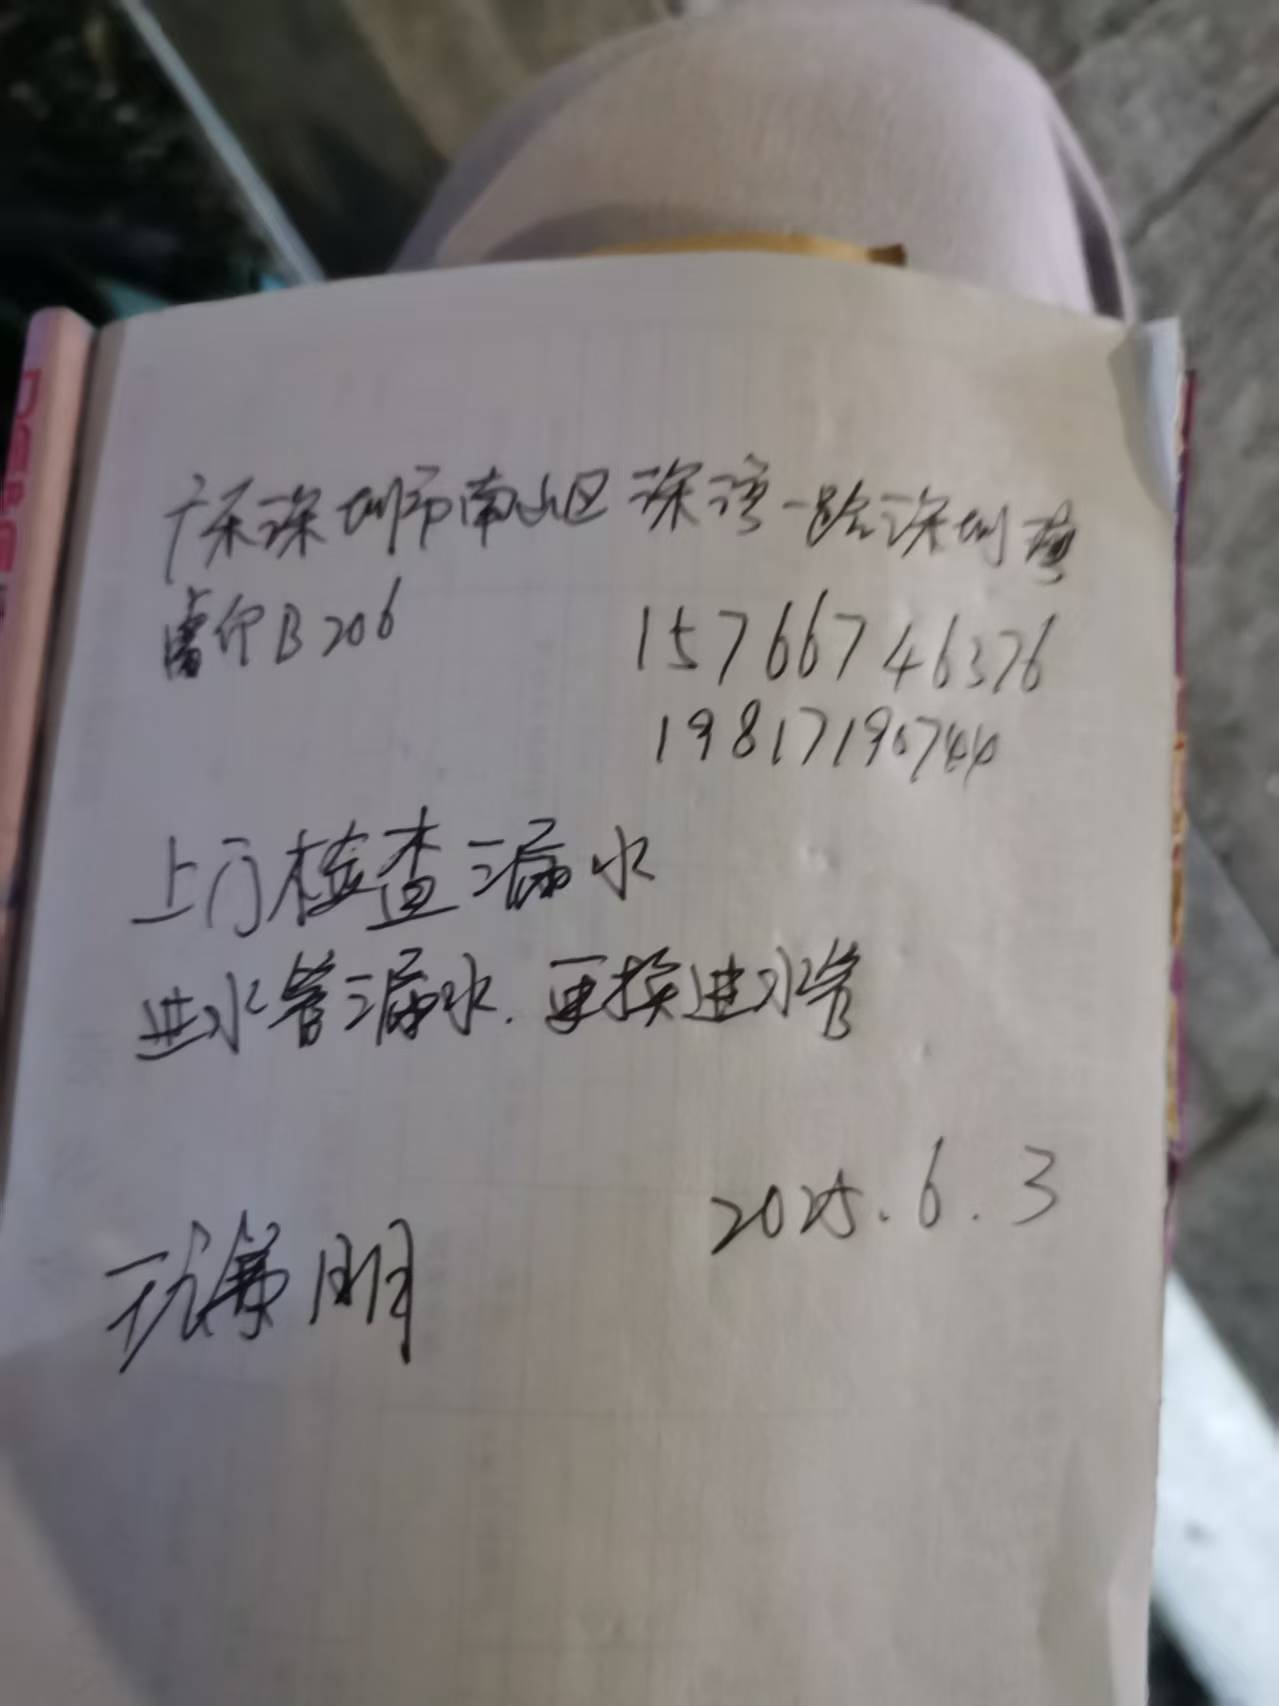 广东深圳市南山区深湾一路深圳湾
睿印B206
15766746376
19817190744
上门检查漏水
进水管漏水.更换进水管
2025.6.3
明